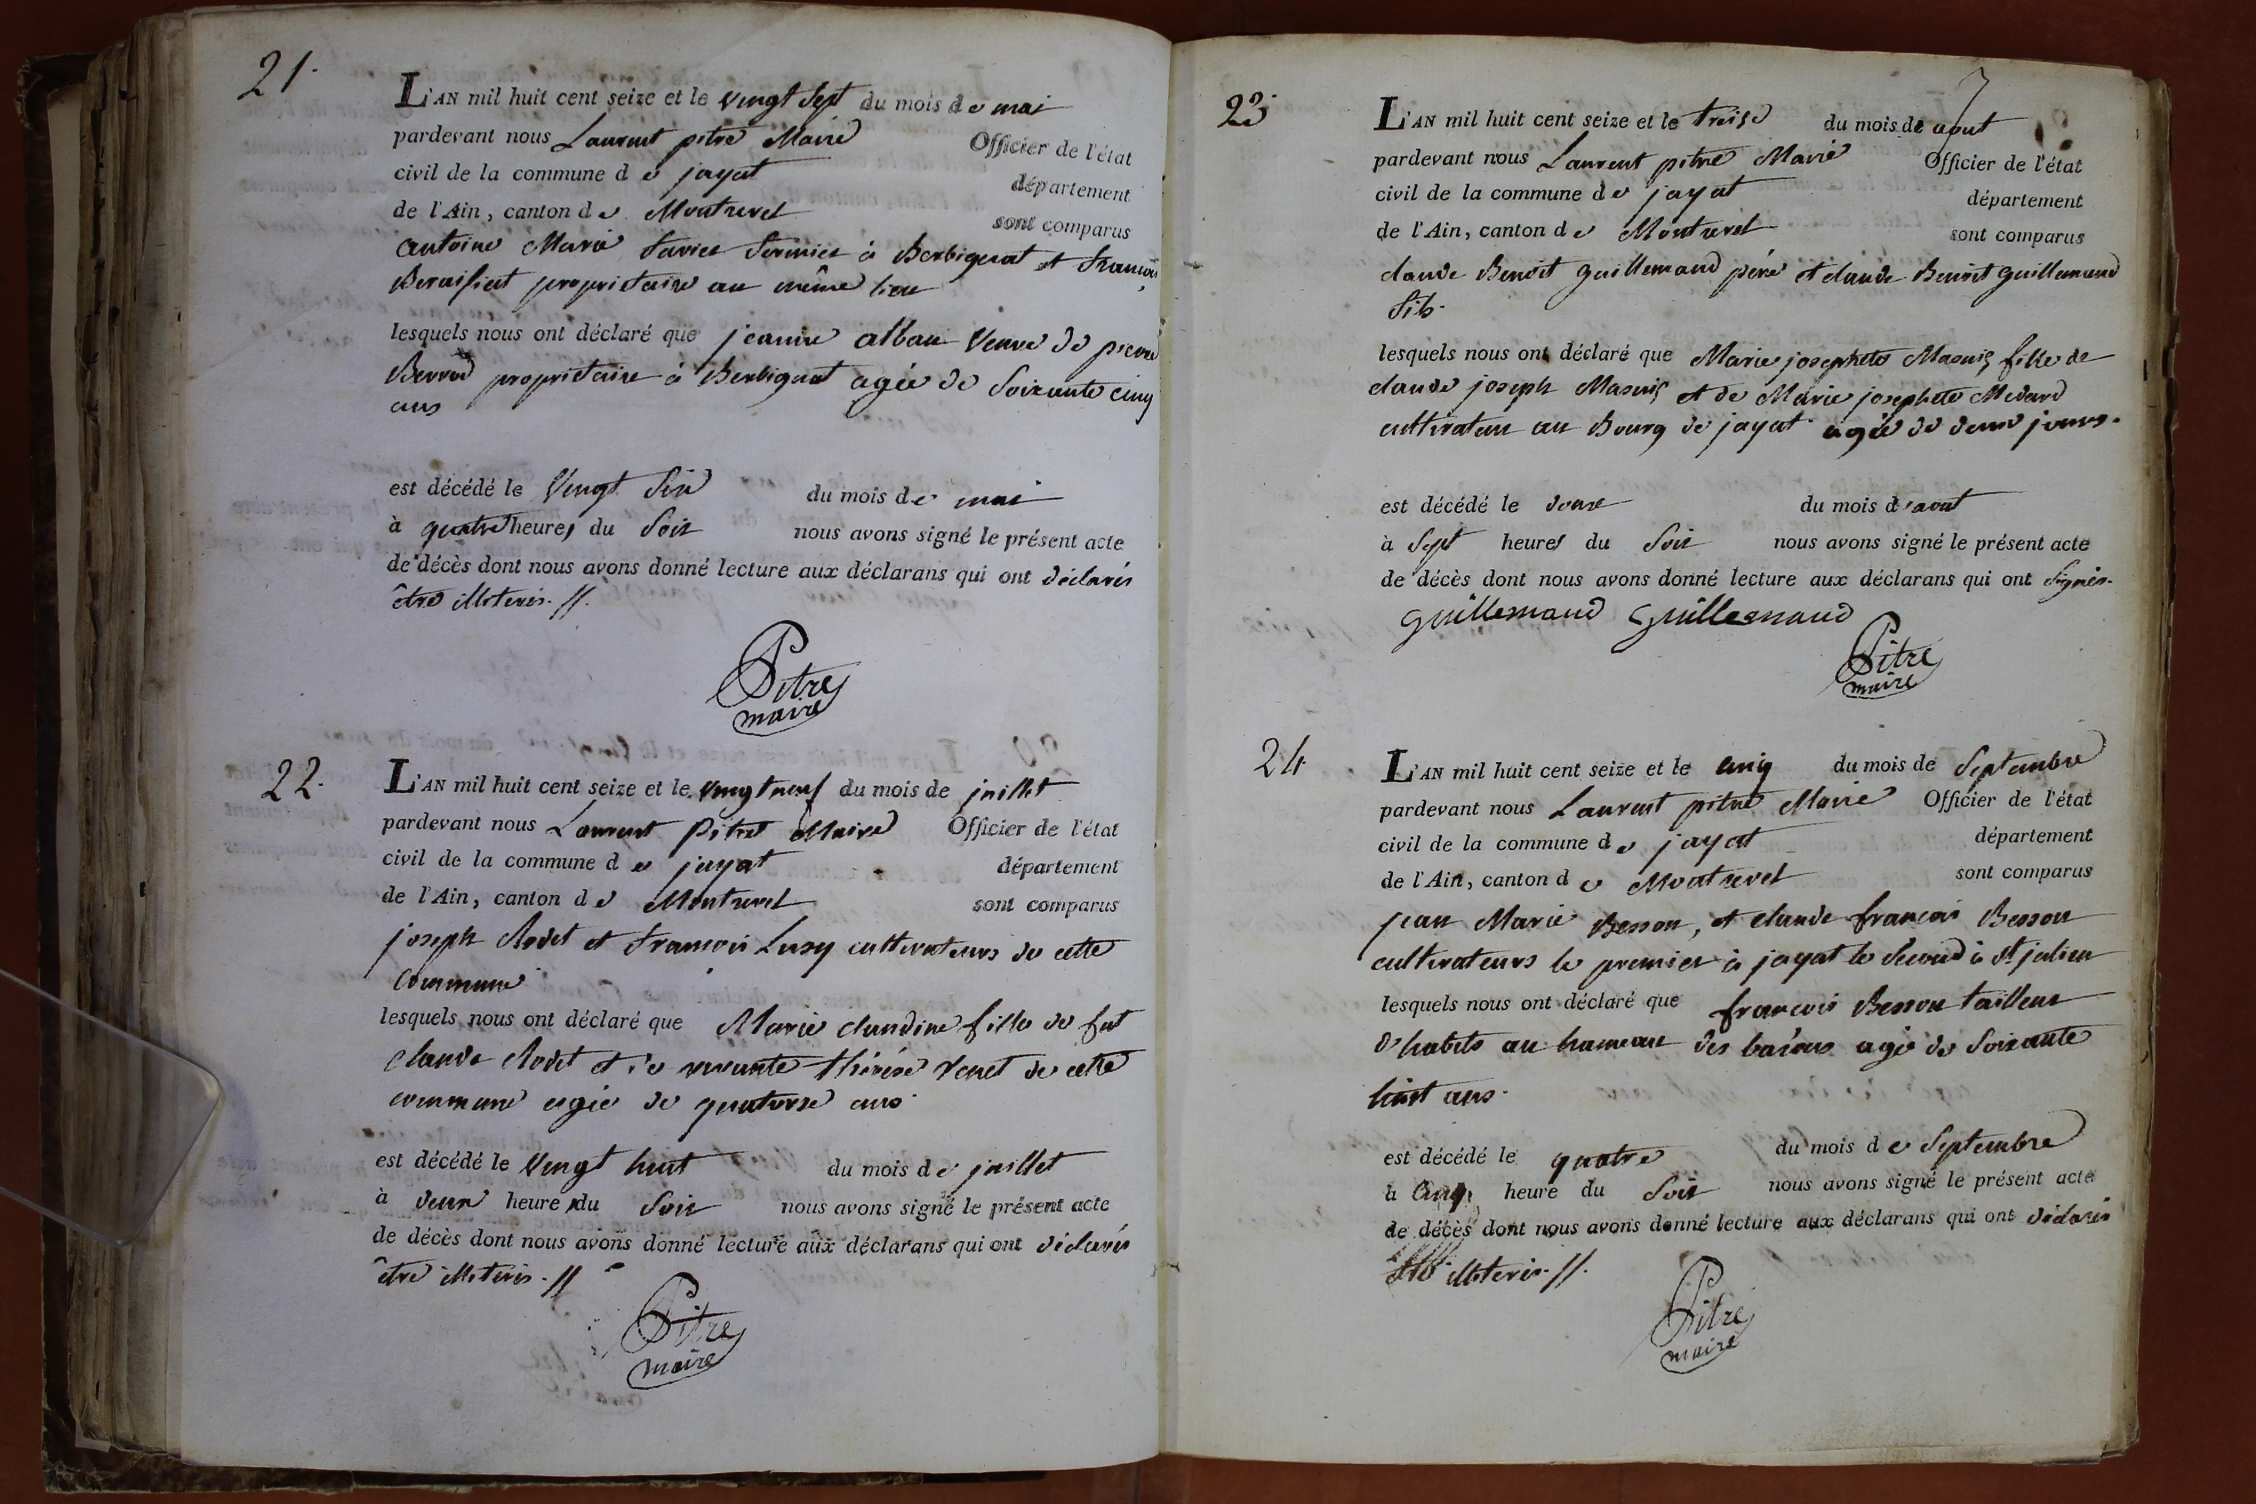 21.
L'AN mil huit cent seize et le vingt sept du mois de mai
pardevant nous Laurent pitre Maire Officier de l'état
civil de la commune de jayat département
de l'Ain, canton de Montrevel sont comparus
antoine Marie favier fermier à Berbiguat et françois
Beraisiat proprietaire au même lieu
lesquels nous ont déclaré que jeanne alban veuve de pierre
Berrod proprietaire à Berbiguat agée de Soixante cinq
ans
est décédé le vingt Six du mois de mai
à quatre heures du Soir nous avons signé le présent acte
de décès dont nous avons donné lecture aux déclarans qui ont déclarés
être illeteris. //.
Pitre
maire
22.
L'AN mil huit cent seize et le vingt neuf du mois de juillet
pardevant nous Laurent Pitre Maire Officier de l'état
civil de la commune de jayat département
de l'Ain, canton de Montrevel sont comparus
joseph Rodet et françois Lusy cultivateurs de cette
commune
lesquels nous ont déclaré que Marie claudine fille de fut
claude Rodet et de vivante thérèse venet de cette
commune agée de quatorse ans.
est décédé le vingt huit du mois de juillet
à deux heure du Soir nous avons signé le présent acte
de décès dont nous avons donné lecture aux déclarans qui ont déclarés
être illeteris. //
Pitre
maire
23.
L'AN mil huit cent seize et le treise du mois de aout
pardevant nous Laurent pitre Maire Officier de l'état
civil de la commune de jayat département
de l'Ain, canton de Montrevel sont comparus
claude Benoit guillemaud père et claude Benoit guillemaud
fils.
lesquels nous ont déclaré que Marie josephete Masuis fille de
claude joseph Masuis et de Marie josephete Medard
cultivateur au Bourg de jayat agée de deux jours.
est décédé le douse du mois d'aout
à Sept heures du Soir nous avons signé le présent acte
de décès dont nous avons donné lecture aux déclarans qui ont Signés.
guillemaud guillemaud
Pitre
maire
24
L'AN mil huit cent seize et le cinq du mois de Septembre
pardevant nous Laurent pitre Maire Officier de l'état
civil de la commune de jayat département
de l'Ain, canton de Montrevel sont comparus
jean Marie Besson, et claude françois Besson
cultivateurs le premier à jayat le Second à St julien
lesquels nous ont déclaré que françois Besson tailleur
d'habits au hameau des agé de Soixante
huit ans.
est décédé le quatre du mois de Septembre
à cinq heure du Soir nous avons signé le présent acte
de décès dont nous avons donné lecture aux déclarans qui ont déclarés
illeteris. //.
Pitre
maire